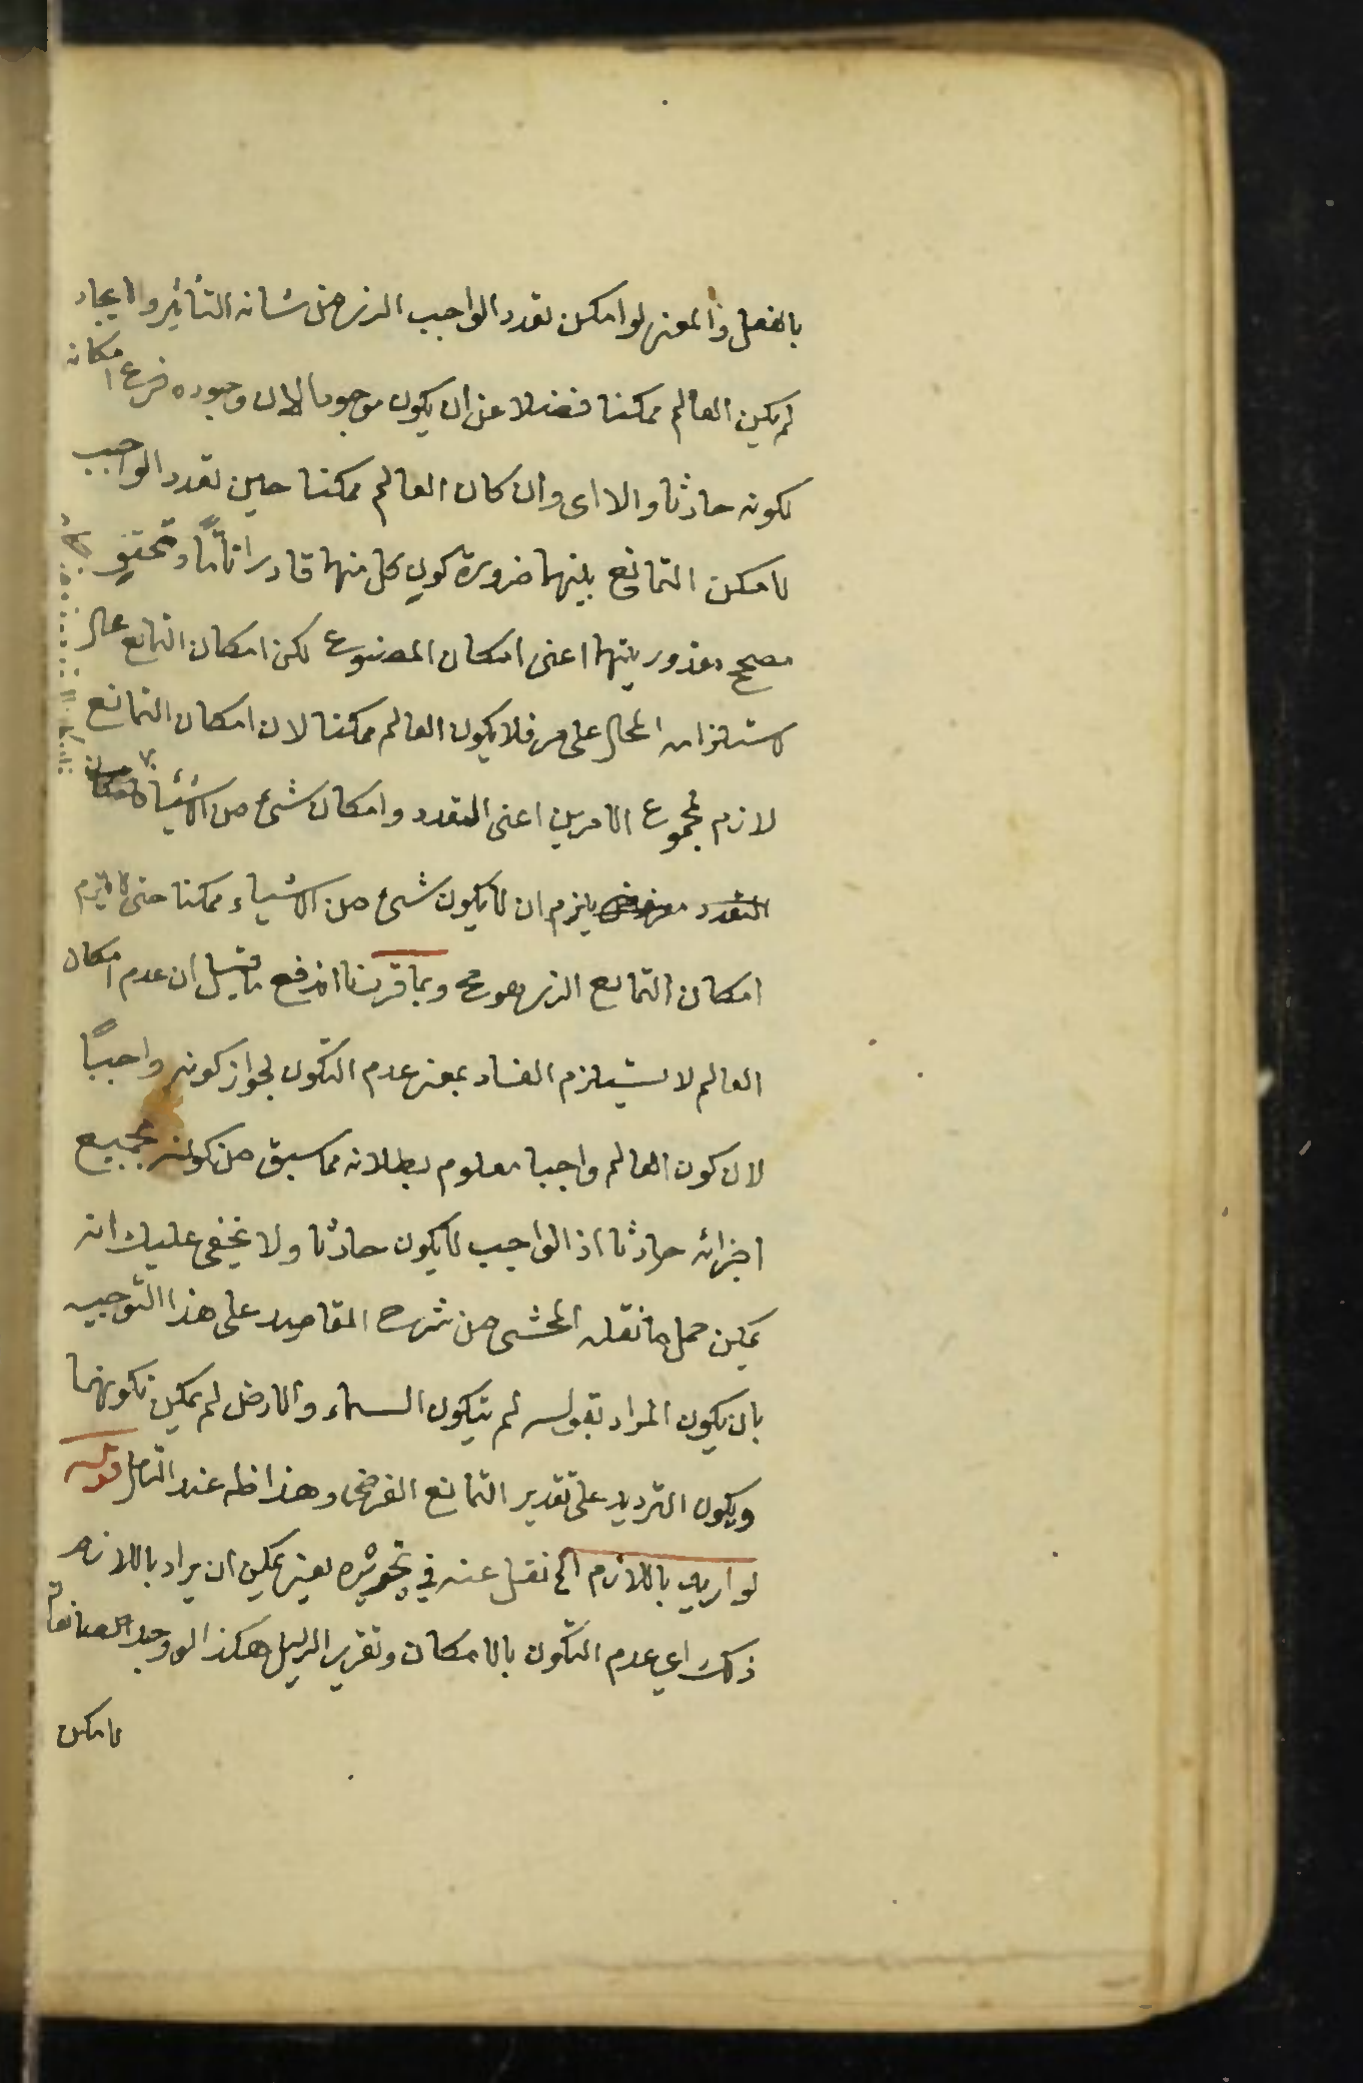 بالفعل والمعنى لو امكن تعدد الواجب الذى من شانه التأثير وايجاد
لم يكن العالم ممكنا فضلا عن ان يكون موجودا لان وجوده فرع امكانه
لكونه حادثا والا اى وان كان العالم ممكنا حين تعدد الواجب
لامكن التمانع بينهما ضرورة كون كل منهما قادرا تاما وتحقق
مصحح مقدوريتها اعنى امكان المصنوع لكن امكان التمانع محال
لاستلزامه المحال على مر فلا يكون العالم ممكنا لان امكان التمانع
لازم لمجموع الامرين اعنى التعدد وامكان شئ من الاشياء
التعدد يلزم ان لا يكون شئ من الاشياء ممكنا حتى لا يلزم
امكان التمانع الذى هو مح وبما قررنا اندفع ما قيل ان عدم امكان
العالم لا يستلزم الفساد بمعنى عدم التكون لجواز كونه واجبًا
لان كون العالم واجبا معلوم بطلانه مما سبق من كونه بجميع
اجزائه حادثا اذ الواجب لا يكون حادثا ولا يخفى عليك انه
يمكن حمل ما نقله المحشى من شرح المقاصد على هذا التوجيه
بان يكون المراد بقوله لم يتكون السماء والارض لم يمكن تكونهما
ويكون الترديد على تقدير التمانع الفرضى وهذا ظه عند التامل قوله
لو اريد باللازم الخ نقل عنه فى تجويزه يعنى يمكن ان يراد باللازم
ذلك اى عدم التكون بالامكان وتقرير الدليل هكذا لو وجد الصانعان
لامكن